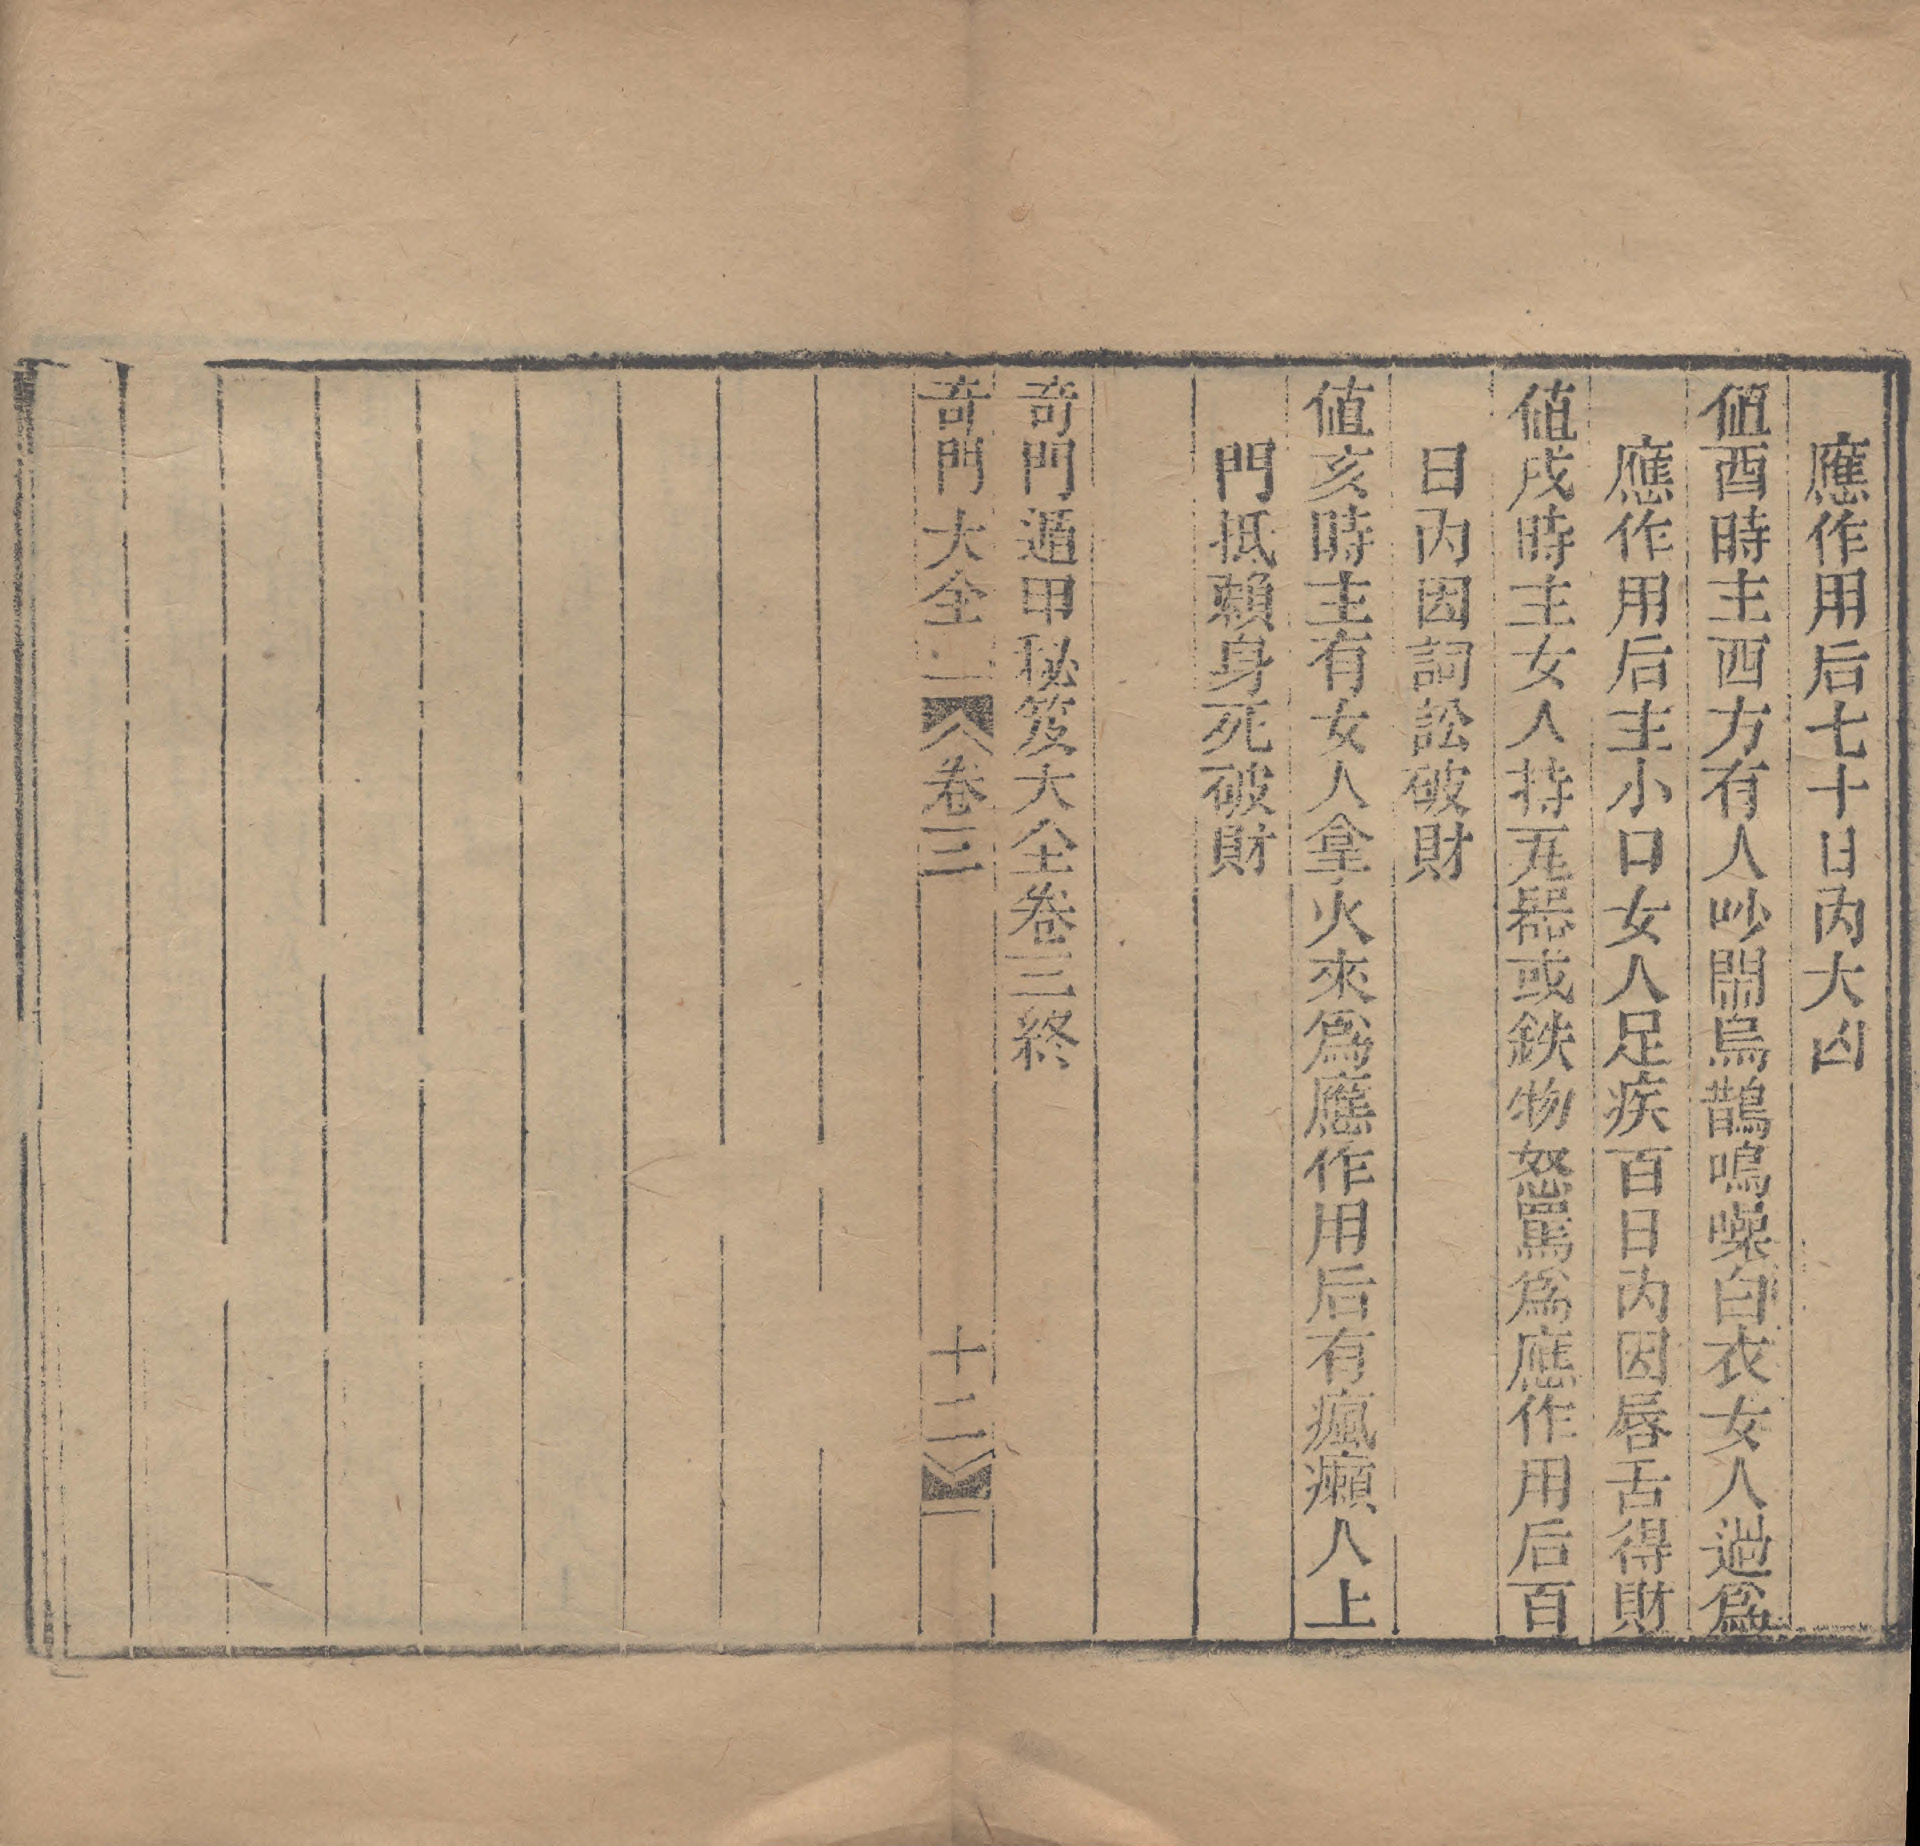 應作用后七十日內大凶
值酉時主西方有人吵鬧烏鵲鳴噪白衣女人過爲
應作用后主小口女人足疾百日內因唇舌得財
值戌時主女人持瓦器或鉄物怒罵爲應作用后百
日內因詞訟破財
值亥時主有女人拿火來爲應作用后有瘋癲人上
門抵賴身死破財
奇門遁甲秘笈大全卷三終
奇門大全
卷三
十二